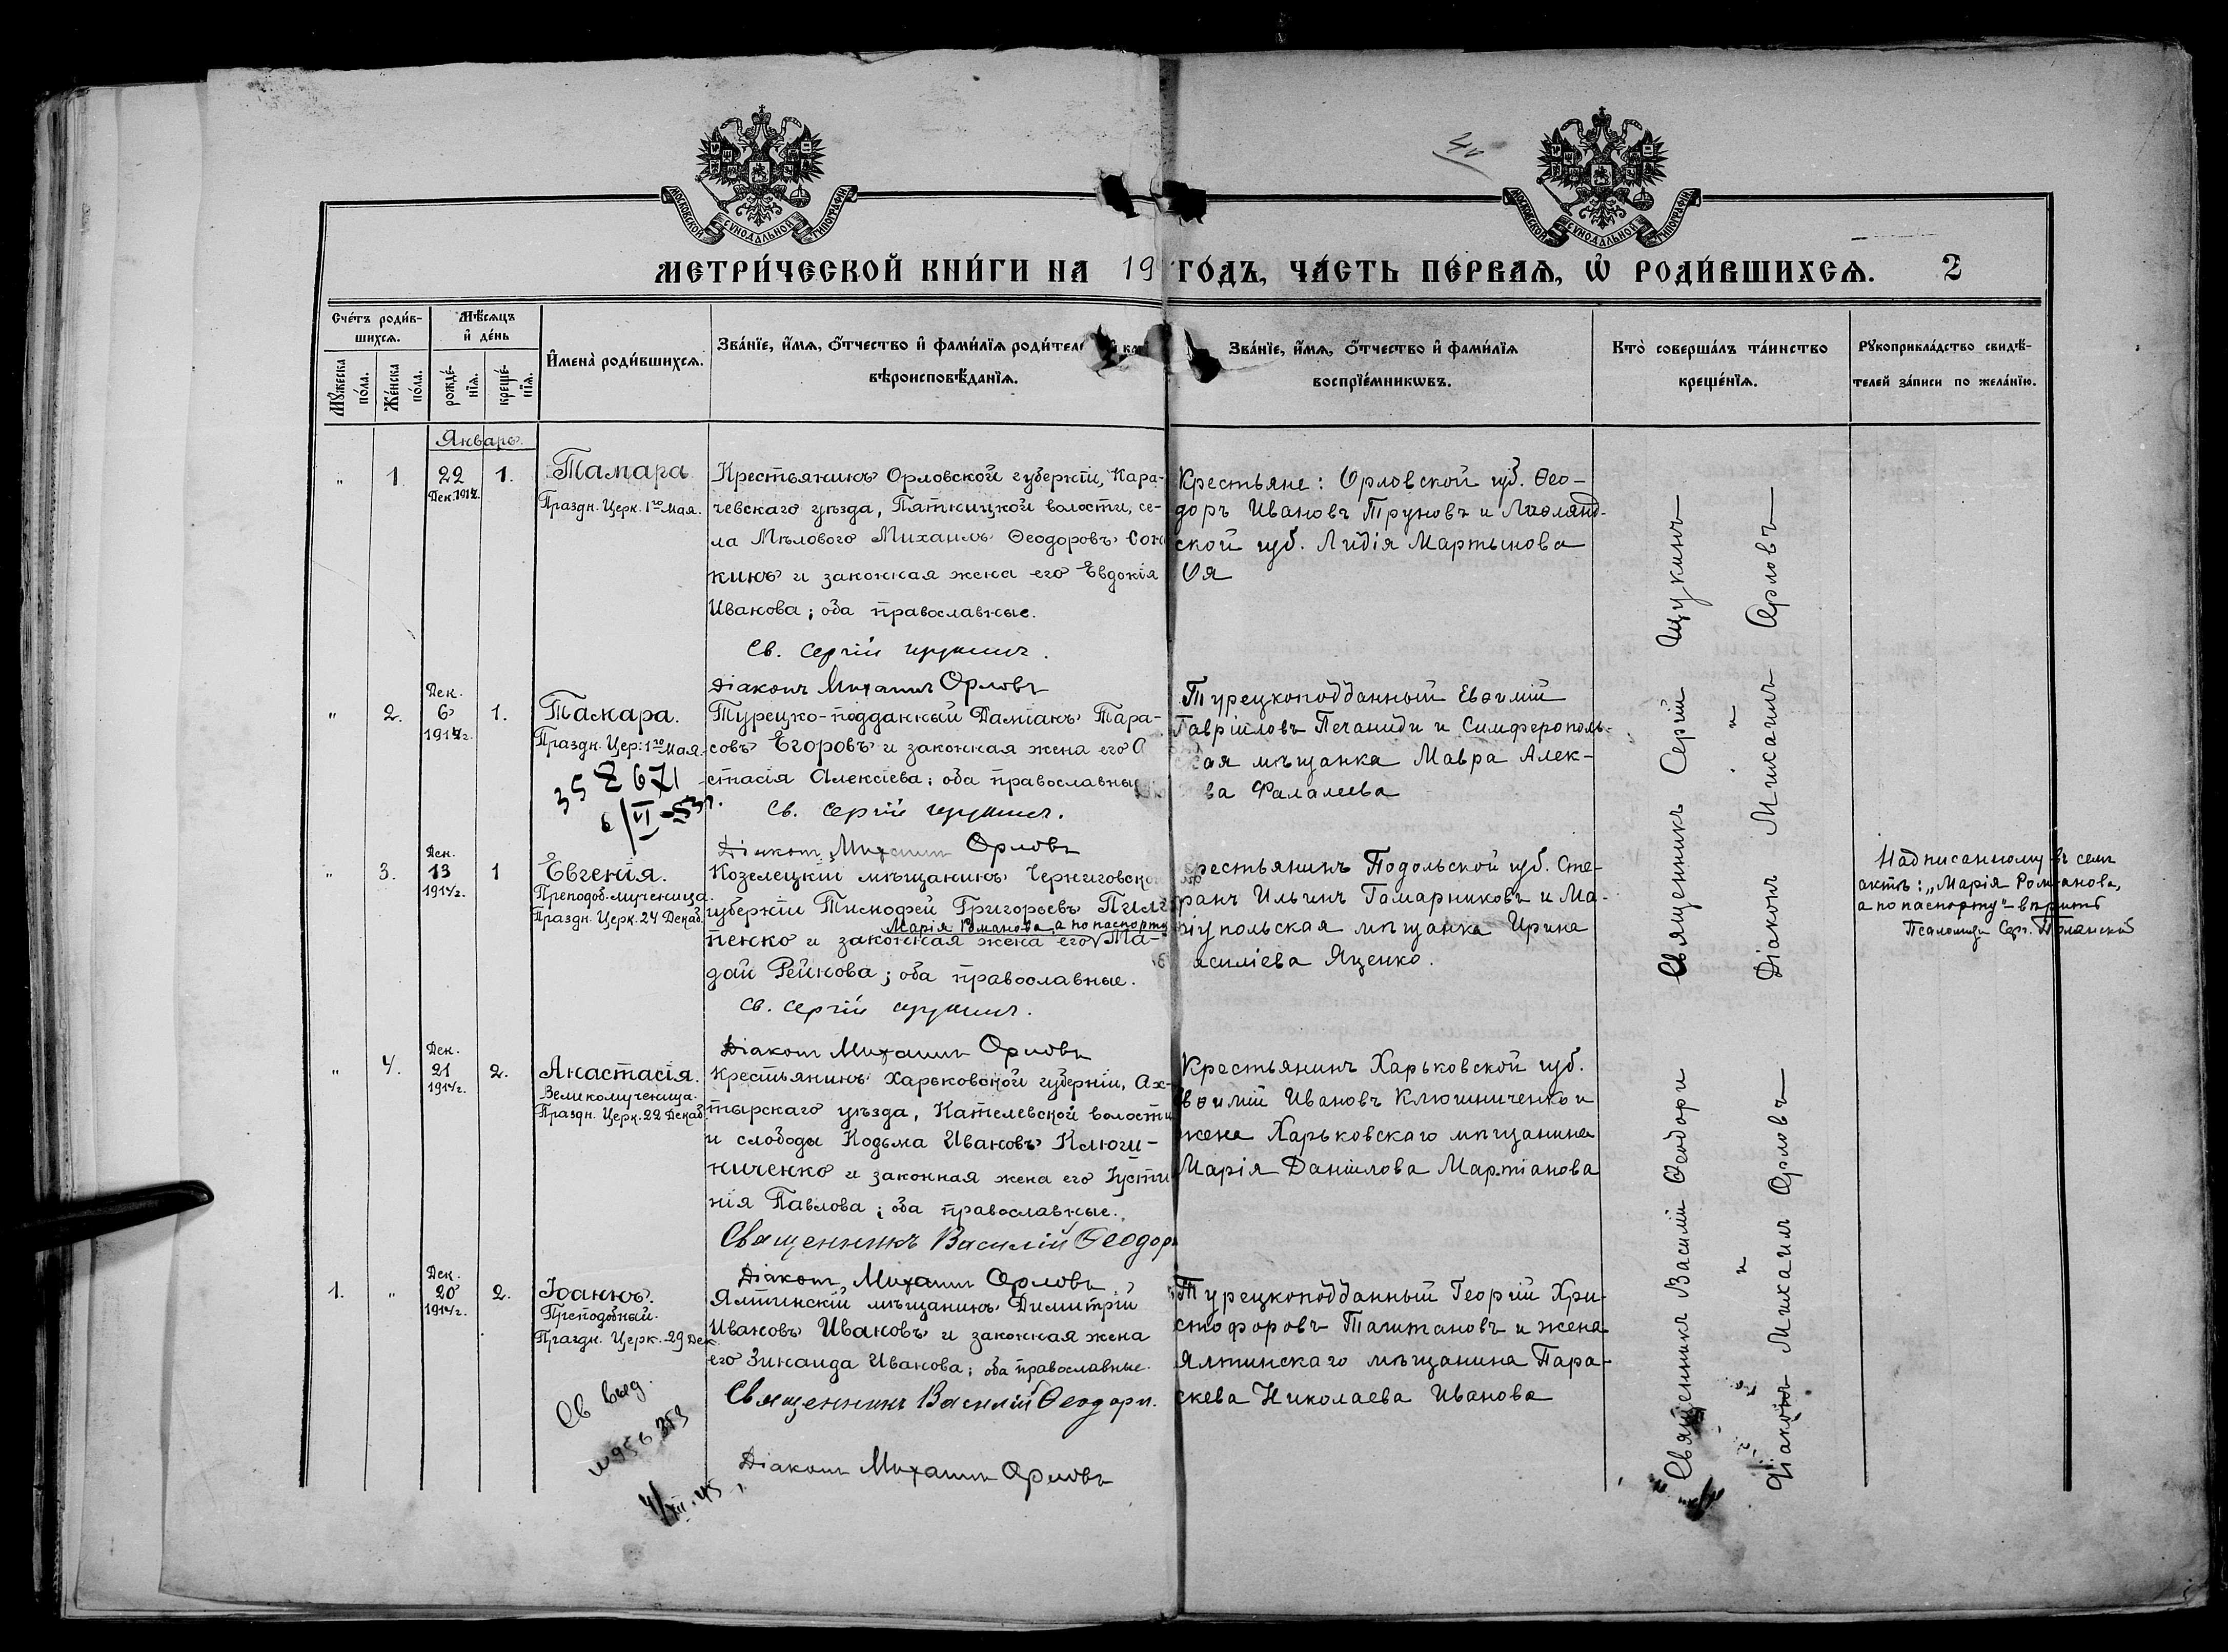 МОСКОВСКОЙ СѴНОДАЛЬНОЙ ТИПОГРАФІИ
МОСКОВСКОЙ СѴНОДАЛЬНОЙ ТИПОГРАФІИ
МЕТРИ́ЧЕСКОЙ КНИ́ГИ НА 19 ГО́ДЪ, ЧА́СТЬ ПЕ́РВАѦ, Ѡ҆ РОДИ́ВШИХСѦ. 2
Сче́тъ роди́в-
шихсѧ.
Мꙋ́жеска
по́ла.
Же́нска
по́ла.
Мѣ́сѧцъ
и҆ де́нь
рожде́-
нїѧ.
креще́-
нїѧ.
И҆мена̀ роди́вшихсѧ.
Зва́нїе, и҆́мѧ, ѻ҆́тчество и҆ фами́лїѧ роди́тел
вѣроисповѣ́данїѧ.
Зва́нїе, и҆́мѧ, ѻ҆́тчество и҆ фами́лїѧ
воспрїе́мникѡвъ.
Кто̀ соверша́лъ та́инство
креще́нїѧ.
Рꙋкоприкла́дство свидѣ́-
телей за́писи по жела́нїю.
Январь.
" 1 22 1.
Дек. 1914г.
Тамара
Праздн. Церк. 1го Мая.
Крестьянинъ Орловской губерніи, Кара-
чевскаго уѣзда, Пятницкой волости, се-
ла Мѣлового Михаилъ Ѳеодоровъ Сон
кинъ и законная жена его Евдокія
Иванова; оба православные.
Св. Сергій Щукинъ.
Діаконъ Михаилъ Орловъ
Крестьяне: Орловской губ. Ѳео-
доръ Ивановъ Труновъ и Лифлянд-
ской губ. Лидія Мартынова
Оя
" 2. Дек.
6 1.
1914г.
Тамара.
Праздн. Цер: 1го Мая.
35 Z 671
6/VI-53г.
Турецко-подданный Даміанъ Тара-
совъ Егоровъ и законная жена его А
стасія Алексіева; оба православны
Св. Сергій Щукинъ.
Діаконъ Михаилъ Орловъ
Турецкоподданный Евѳимій
Гавріиловъ Печаниди и Симферополь-
кая мѣщанка Мавра Алек-
ва Фалалеева
" 3. Дек.
13 1
1914г.
Евгенія.
Преподоб. мученица.
Праздн. Церк. 24 Декаб.
Козелецкій мѣщанинъ Черниговско
губерніи Тимофей Григорьевъ Пили
Марія Романова, а по паспорту
пенко и законная жена его Ма-
дай Рейнова; оба православные.
Св. Сергій Щукинъ.
Діаконъ Михаилъ Орловъ
рестьянинъ Подольской губ. Сте-
фанъ Ильинъ Гамарниковъ и Ма-
ріупольская мѣщанка Ирина
асиліева Яценко.
Священникъ Сергій Щукинъ
и
Діаконъ Михаилъ Орловъ
Надписанному въ семъ
актѣ: „Марія Романова,
а по паспорту" вѣрить
Псаломщ. Серг.
" 4. Дек.
21 2.
1914г.
Анастасія.
Великомученица.
Праздн. Церк. 22 Декаб.
Крестьянинъ Харьковской губерніи, Ах-
тырскаго уѣзда, Кателевской волости
и слободы Кодьма Ивановъ Клюши-
ниченко и законная жена его Іусти
нія Павлова; оба православные.
Священникъ Василій Ѳеодор
Діаконъ Михаилъ Орловъ
Крестьянинъ Харьковской губ.
Евѳимій Ивановъ Клюшниченко и
жена Харьковскаго мѣщанина
Марія Даніилова Мартіанова
1. " Дек.
20 2.
1914г.
Іоаннъ.
Преподобный.
Праздн. Церк. 29 Дек.
Св выд.
956353
4/VII.45
Ялтинскій мѣщанинъ Димитрій
Ивановъ Ивановъ и законная жена
его Зинаида Иванова; оба православные.
Священникъ Василій Ѳеодори.
Діаконъ Михаилъ Орловъ
Турецкоподданный Георгій Хри-
стофоровъ Талитановъ и жена
Ялтинскаго мѣщанина Пара-
скева Николаева Иванова
Священникъ Василій Ѳеодори
и
Діаконъ Михаилъ Орловъ